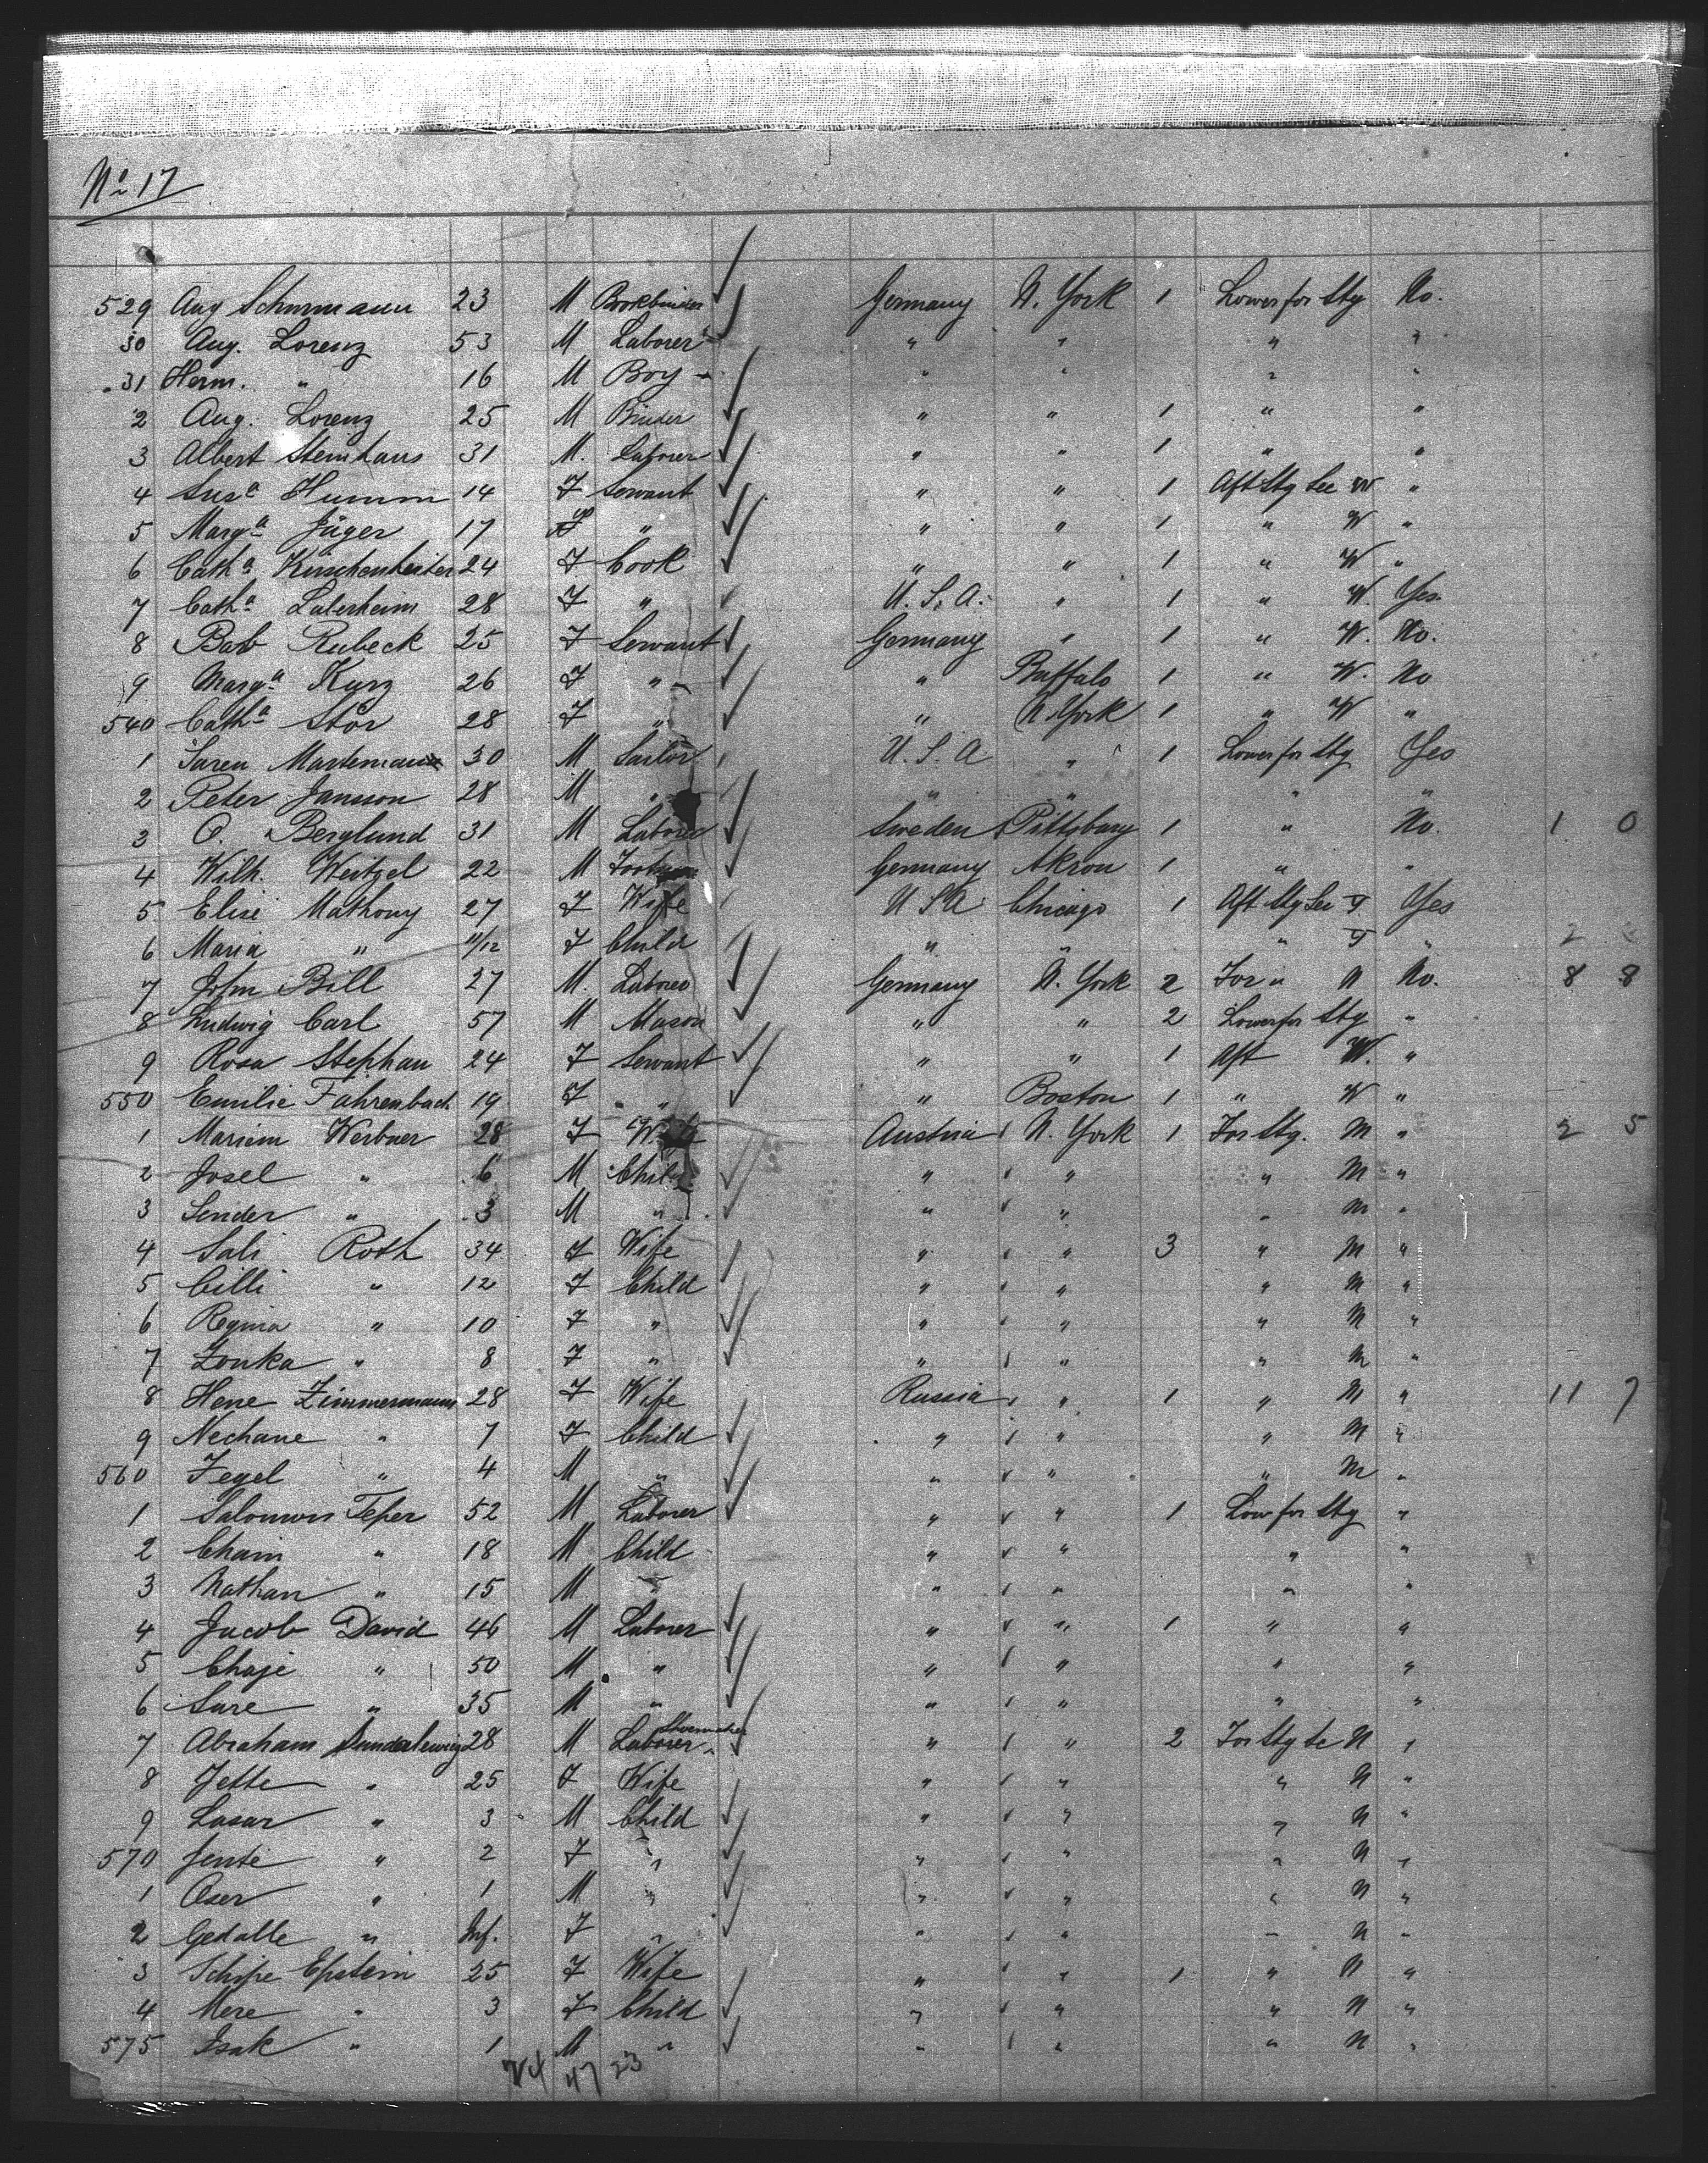 No 17
529 Aug Schurmann 23 M Bookbinder Germany N. York 1 Lower for Stg No.
30 Aug. Lorenz 53 M Laborer " " " "
31 Herm. " 16 M Boy " " " "
2 Aug. Lorenz 25 M Binder " " 1 " "
3 Albert Steinhaus 31 M. Laborer " " 1 " "
4 Susa Humm 14 F Servant " " 1 Aft Stg Sec W "
5 Marga Jäger 17 F " " " 1 " W "
6 Catha 24 F Cook " " 1 " W "
7 Catha Laberheim 28 F " U. S. A. " 1 " W. Yes.
8 Bab Rubeck 25 F Servant Germany " 1 " W. No.
9 Marga Kurz 26 F " " Buffalo 1 " W. No
540 Catha Stör 28 F " " N. York 1 " W "
1 Soren 30 M Sailor U. S. A " 1 Lower for Stg Yes
2 Peter Jansson 28 M " " " " "
3 O. Berglund 31 M Laborer Sweden Pittsburg 1 " No. 1 0
4 Wilh. Weitzel 22 M Germany Akron 1 " "
5 Elise Mathony 27 F Wife U S A Chicago 1 Aft Stg Sec F. Yes
6 Maria " 11/12 F Child " " " F " 2
7 John Bill 27 M. Laborer Germany N. York 2 For " N No. 8 8
8 Ludwig Carl 57 M Mason " " 2 Lower for Stg "
9 Rosa Stephan 24 F Servant " " 1 Aft W. "
550 Emilie Fahrenbach 19 F " " Boston 1 " W "
1 Mariem Werbner 28 F Austria N. York 1 For Stg. M " 2 5
2 Josel " 6 M Child " " " M "
3 Sender " 3 M " " " " M "
4 Sali Roth 34 F Wife " " 3 " M "
5 Cilli " 12 F Child " " " M "
6 Regina " 10 F " " " " M "
7 Zonka " 8 F " " " " M "
8 Hene Zimmermann 28 F Wife Russia " 1 " M " 11 7
9 Nechane " 7 F Child " " " M "
560 Fegel " 4 M " " " " M "
1 Salomon Teper 52 M Laborer " " 1 Low for Stg "
2 Chaim " 18 M Child " " " "
3 Nathan " 15 M " " " " "
4 Jacob David 46 M Laborer " " 1 " "
5 Chaje " 50 M " " " " "
6 Sure " 35 M " " " " "
7 Abraham 28 M Laborer Shoemaker " " 2 For Stg Sc N "
8 Jette " 25 F Wife " " " N "
9 Lasar " 3 M Child " " " N "
570 Jente " 2 F " " " " N "
1 Oser " 1 M " " " " N "
2 Gedalle " Inf. F " " " " N "
3 Schipe Epstein 25 F Wife " " 1 " N "
4 Mere " 3 F Child " " " N "
575 Isak " 1 M " " " " N "
24 47 23